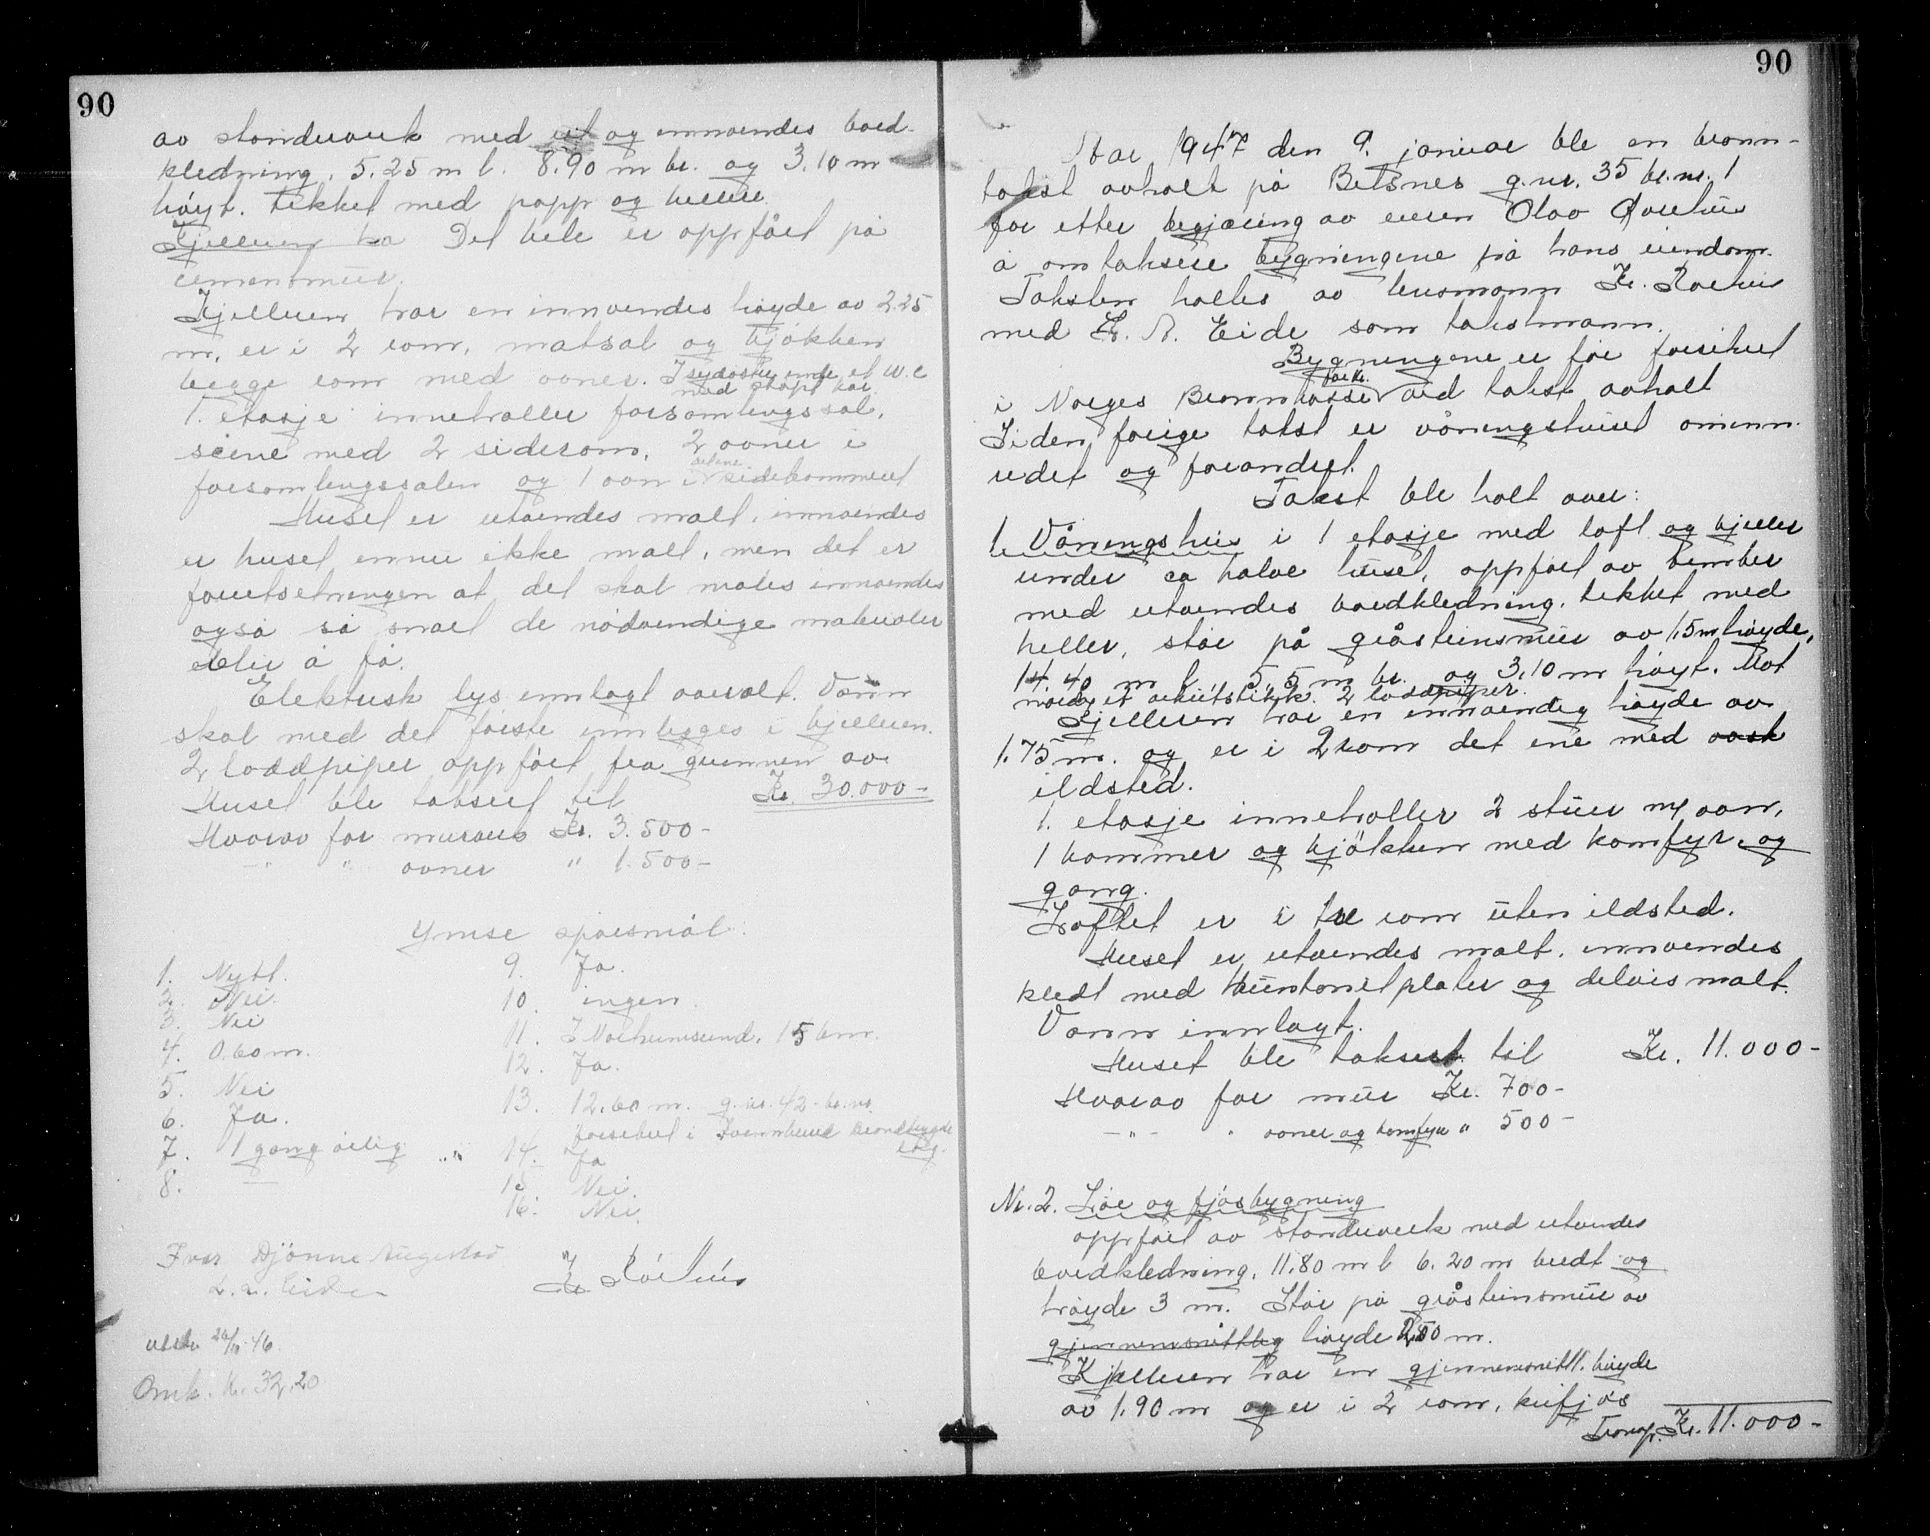 90
av standverk med ut og innvendes bord-
kledning. 5.25 m l. 8.90 m br. og 3.10 m
høyt. Tekket med papp og heller.
Kjelleren ha Det hele er oppført på
cementmur.
Kjelleren har en innvendes høyde av 2.25
m, er i 2 rom, matsal og kjøkken
begge rom med ovner. I sydøstre ende et W.C
med støpt kar
1. etasje inneholler forsamlingssal,
scene med 2 siderom. 2 ovner i
forsamlingssalen og 1 ovn i det ene sidekammeret
Huset er utvendes malt, innvendes
er huset ennu ikke malt, men det er
forutsetningen at det skal males innvendes
også så snart de nødvendige materialer
blir å få.
Elektrisk lys innlagt overalt. Vann
skal med det første innlegges i kjelleren.
2 loddpiper oppført fra grunnen av
Huset ble taksert til Kr. 30.000-
Hvorav for murarb Kr. 3.500-
-"- " ovner " 1.500-
Ymse spørsmål:
1. Nytt. 9. Ja.
2. Nei. 10. ingen.
3. Nei 11. I Norheimsund, 15 km.
4. 0.60 m. 12. Ja.
5. Nei 13. 12.60 m. g.nr. 42 br.nr.
6. Ja. forsikret i brandtrygde
7. 1 gang årlig 14. Ja
8. — 15. Nei.
16. Nei.
Ivar Djønne Augestad Kr Rørhus
L. L. Eide
utskr 26/10-46.
Omk. Kr. 32,20
90
År 1947 den 9. januar ble en brann-
takst avholt på Belsnes g.nr. 35 br.nr. 1
for etter begjæring av eieren Olav
å omtaksere bygningene på hans eiendom.
Taksten holles av lensmann Kr. Rørhus
med L. A. Eide som takstmann.
Bygningene er før forsikret
i Norges Brannkasse for kr. ved takst avholt
Siden forige takst er våningshuset ominn-
redet og forandret.
Takst ble holt over:
1. Våningshus i 1 etasje med loft og kjeller
under ca halve huset, oppført av tømber
med utvendes bordkledning, tekket med
heller, står på gråsteinsmur av 1.5 m høyde,
14.40 m l. 5,5 m br. og 3,10 m høyt. Mot
nord et arkutstikk. 2 loddpiper.
Kjelleren har en innvendig høyde av
1.75 m. og er i 2 rom det ene med vask
ildsted.
1. etasje inneholler 2 stuer m/ ovn,
1 kammer og kjøkken med komfyr, og
gang.
Loftet er i tre rom uten ildsted.
Huset er utvendes malt, innvendes
kledt med Huntonitplater og delvis malt.
Vann innlagt.
Huset ble taksert til Kr. 11.000-
Hvorav for mur Kr. 700-
-"- " ovner og komfyr " 500-
Nr. 2. Løe og fjøsbygning
oppført av standverk med utvendes
bordkledning, 11.80 m l 6.20 m bredt og
høyde 3 m. Står på gråsteinsmur av
gjennemsnittleg høyde 2.50 m.
Kjelleren har en gjennemsnittl. høyde
av 1.90 m og er i 2 rom, kufjøs
Transp. Kr. 11.000-